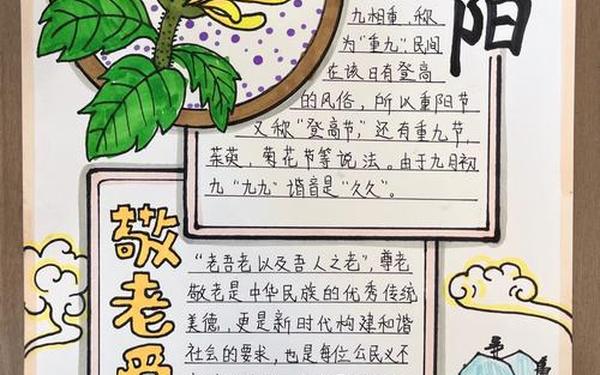 阳
九相重,称
为"重九".民间
在该日有登高
的风俗，所以重阳节
又称"登高节",还有重九节,
茱萸，菊花节等说法。由于九月初
九"九九"谐音是"久久"。
敬老爱
"老吾老以及吾人之老",尊老
敬老是中华民族的优秀传统
美德，更是新时代构建和谐
社会的要求，也是每位公民义不